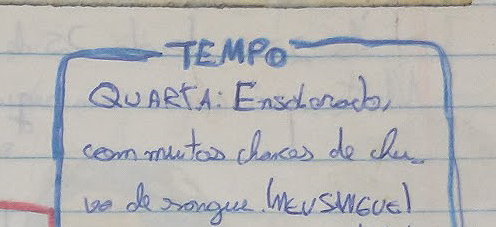 TEMPO
QUARTA: Ensolarado,
com muitas chances de chu-
va de sangue. (MEU SANGUE)